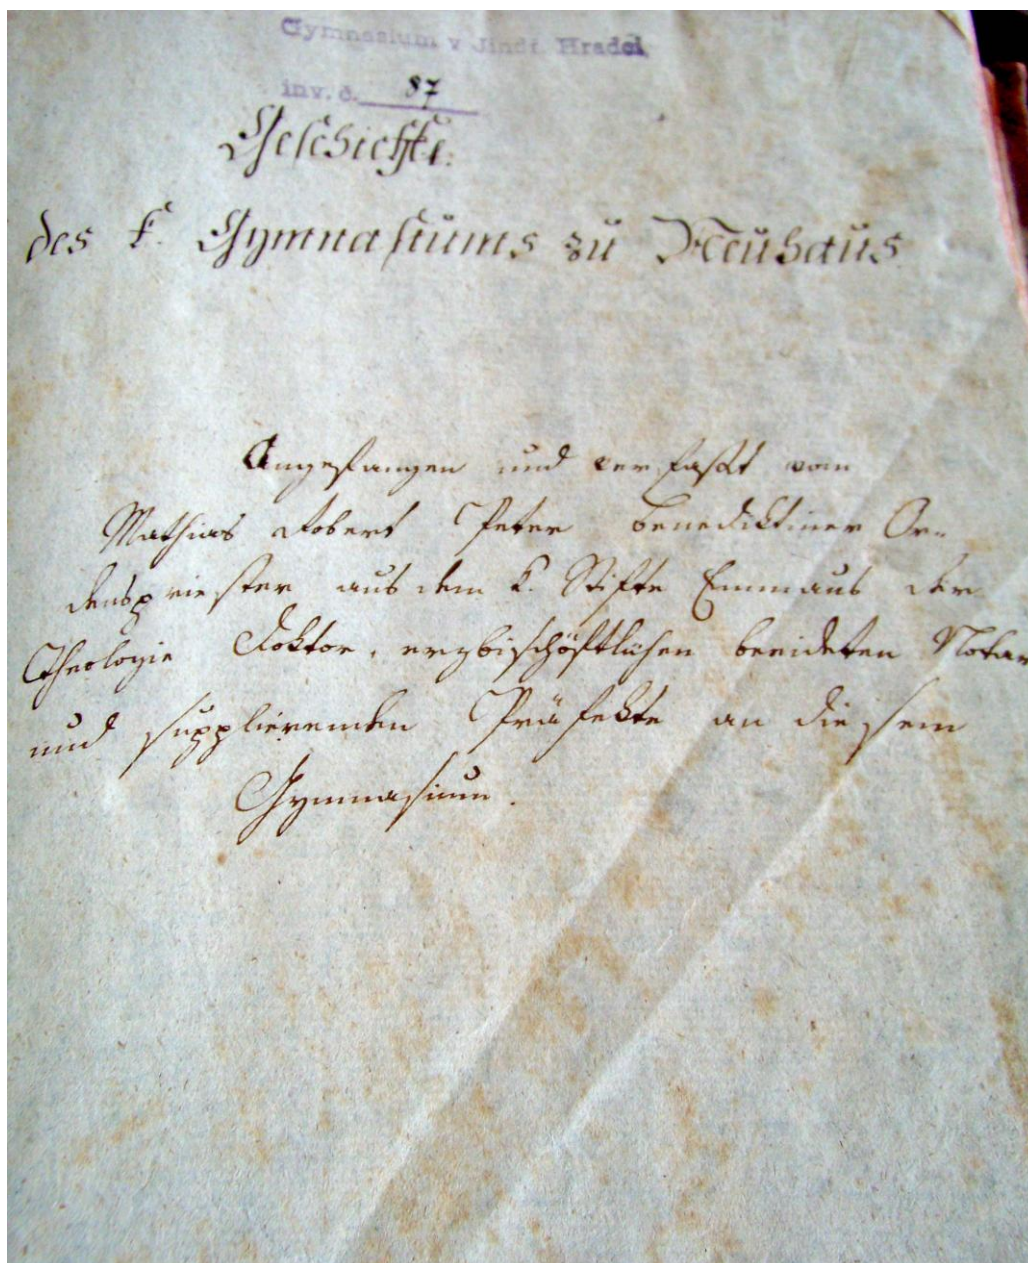 Gymnasium v Jindř. Hradci
inv. č. 87
Geschichte
des k. Gymnasiums zu Neuhaus
Angefangen und verfaßt von
Mathias Robert Peter Benediktiner Or-
denspriester aus dem k. Stifte Emmaus der
Theologie Doktor, erzbischöftlichen beeideten Notar
und supplierenden Präfekte an diesem
Gymnasium.